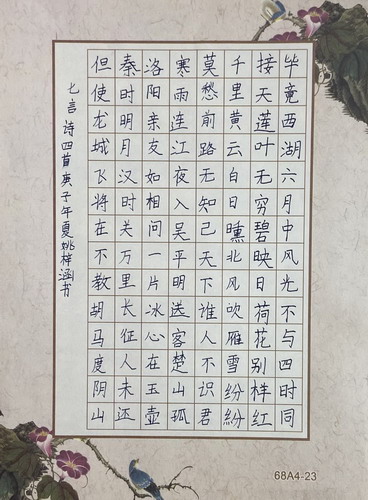 毕竟西湖六月中风光不与四时同
接天莲叶无穷碧映日荷花别样红
千里黄云白日曛北风吹雁雪纷纷
莫愁前路无知己天下谁人不识君
寒雨连江夜入吴平明送客楚山孤
洛阳亲友如相问一片冰心在玉壶
秦时明月汉时关万里长征人未还
但使龙城飞将在不教胡马度阴山
七言诗四首庚子年夏姚梓涵书
68A4-23